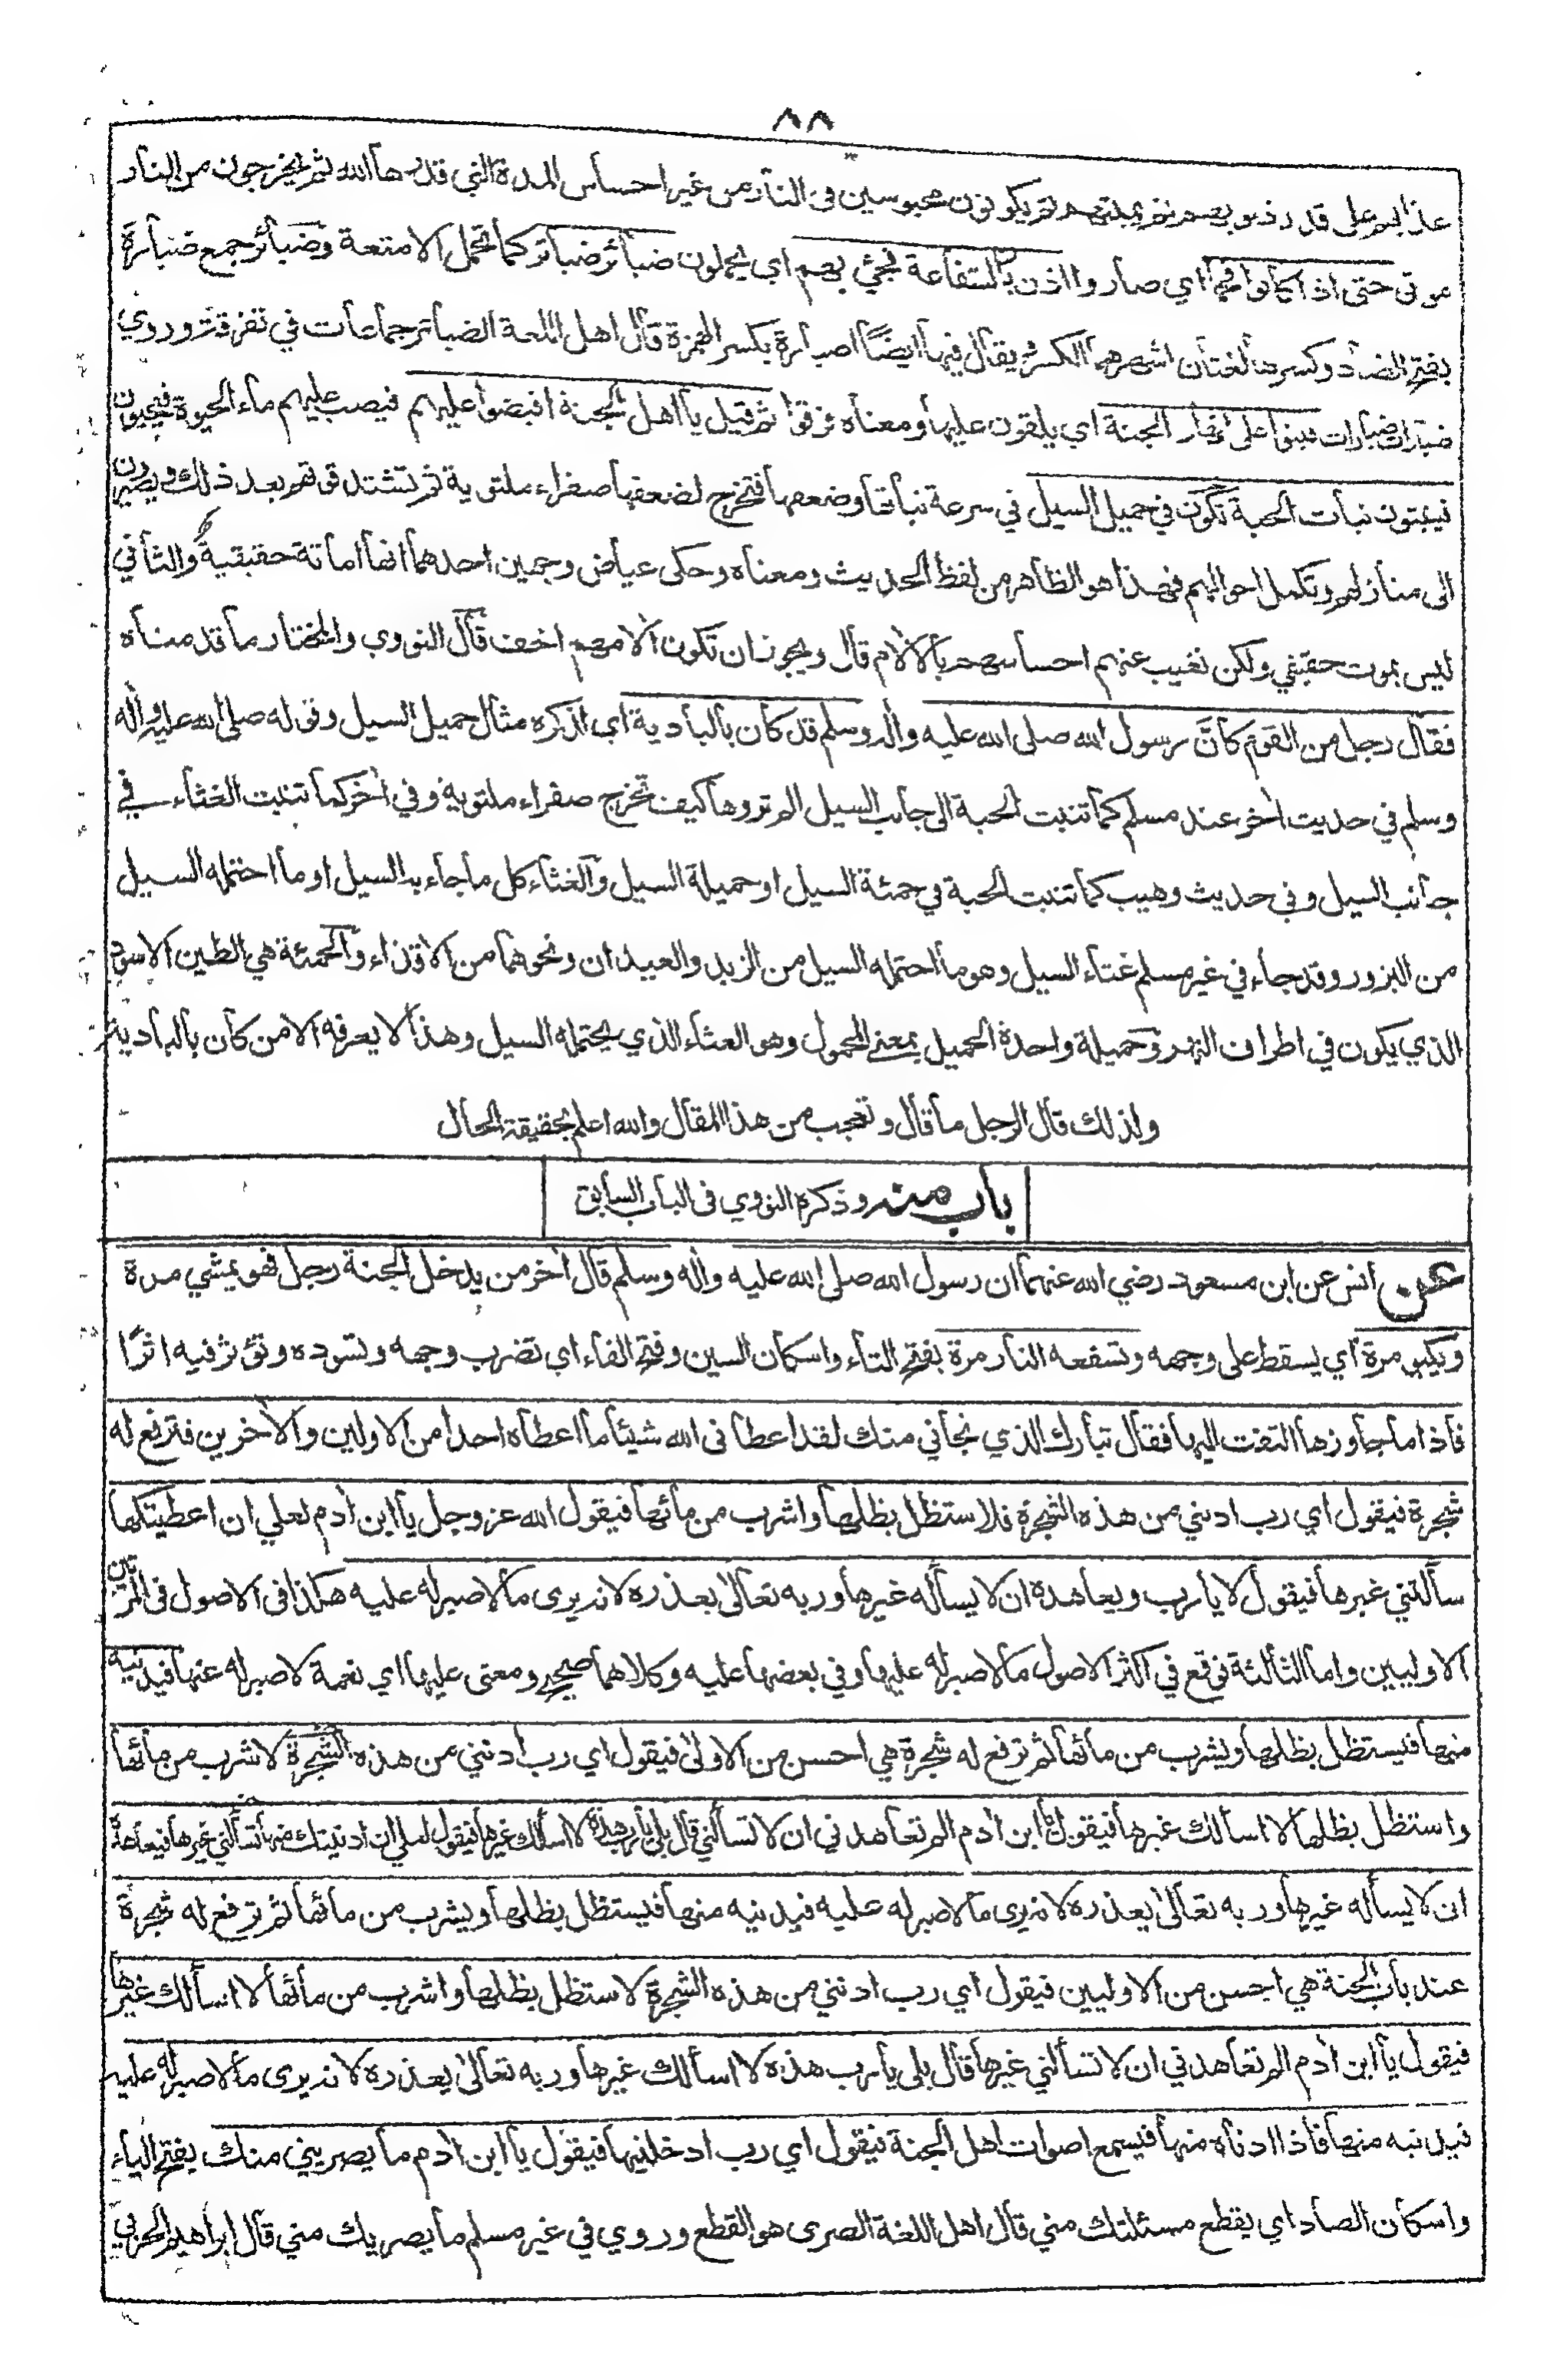 ٨٨
عذابهم على قدر ذنوبهم ثم يميتهم ثم يكونون محبوسين في النار من غير احساس المدة التي قدرها الله ثم يخرجون من النار
موتى حتى اذا كانوا فحما اي صاروا اذن بالشفاعة فجيئ بهم اي يحملون ضبائر ضبائر كما تحمل الامتعة وضبائر جمع ضبارة
بفتح الضاد وكسرها لغتان اشهرهما الكسر ويقال فيها ايضًا اضبارة بكسر الهمزة قال اهل اللغة الضبائر جماعات في تفرقة وروي
ضبارات ضبارات فبثوا على انهار الجنة اي يلقون عليها ومعناه فرقوا ثم قيل يا اهل الجنة افيضوا عليهم فيصب عليهم ماء الحيوة فيحيون
فينبتون نبات الحبة تكون في حميل السيل في سرعة نباتها وضعفها فتخرج لضعفها صفراء ملتوية ثم تشتد قوتهم بعد ذلك ويصيرون
الى منازلهم وتكمل احوالهم فهذا هو الظاهر من لفظ الحديث ومعناه وحكى عياض وجهين احدهما انها اماتة حقيقية والثاني
ليس بموت حقيقي ولكن تغيب عنهم احساسهم بالآلام قال ويجوز ان تكون آلامهم اخف قال النووي والمختار ما قدمناه
فقال رجل من القوم كأنَّ رسول الله صلى الله عليه واله وسلم قد كان بالبادية اي لذكره مثال حميل السيل وقوله صلى الله عليه واله
وسلم في حديث اخر عند مسلم كما تنبت الحبة الى جانب السيل الم تروها كيف تخرج صفراء ملتوية وفي اخر كما تنبت الغثاء في
جانب السيل وفي حديث وهيب كما تنبت الحبة في حمئة السيل او حميلة السيل والغثاء كل ما جاء به السيل او ما احتمله السيل
من البزور وقد جاء في غير مسلم غثاء السيل وهو ما احتمله السيل من الزبد والعيدان ونحوهما من الاقذاء والحمئة هي الطين الاسود
الذي يكون في اطراف النهر وحميلة واحدة الحميل بمعنى المحمول وهو الغثاء الذي يحتمله السيل وهذا لا يعرفه الا من كان بالبادية
ولذلك قال الرجل ما قال وتعجب من هذا المقال والله اعلم بحقيقة الحال
باب منه وذكره النووي في الباب السابق
عن انس عن ابن مسعود رضي الله عنهما ان رسول الله صلى الله عليه واله وسلم قال اخر من يدخل الجنة رجل فهو يمشي مرة
ويكبو مرة اي يسقط على وجهه وتسفعه النار مرة بفتح التاء واسكان السين وفتح الفاء اي تضرب وجهه وتسوده وتؤثر فيه اثرًا
فاذا ما جاوزها التفت اليها فقال تبارك الذي نجاني منك لقد اعطاني الله شيئا ما اعطاه احدا من الاولين والاخرين فترفع له
شجرة فيقول اي رب ادنني من هذه الشجرة فلاستظل بظلها واشرب من مائها فيقول الله عز وجل يا ابن ادم لعلي ان اعطيتكها
سألتني غيرها فيقول لا يا رب ويعاهده ان لا يسأله غيرها وربه تعالى يعذره لانه يرى ما لا صبر له عليه هكذا في الاصول في المرتين
الاوليين واما الثالثة فوقع في اكثر الاصول ما لا صبر له عليها وفي بعضها عليه وكلاهما صحيح ومعنى عليها اي نعمة لا صبر له عنها فيدنيه
منها فيستظل بظلها ويشرب من مائها ثم ترفع له شجرة هي احسن من الاولى فيقول اي رب ادنني من هذه الشجرة لاشرب من مائها
واستظل بظلها لا اسالك غيرها فيقول يا ابن ادم الم تعاهدني ان لا تسألني قال بلى يا رب هذه لا اسألك غيرها فيقول لعلي ان ادنيتك منها تسألني غيرها فيعاهده
ان لا يسأله غيرها وربه تعالى يعذره لانه يرى ما لا صبر له عليه فيدنيه منها فيستظل بظلها ويشرب من مائها ثم ترفع له شجرة
عند باب الجنة هي احسن من الاوليين فيقول اي رب ادنني من هذه الشجرة لاستظل بظلها واشرب من مائها لا اسألك غيرها
فيقول يا ابن ادم الم تعاهدني ان لا تسألني غيرها قال بلى يا رب هذه لا اسألك غيرها وربه تعالى يعذره لانه يرى ما لا صبر له عليه
فيدنيه منها فاذا ادناه منها فيسمع اصوات اهل الجنة فيقول اي رب ادخلنيها فيقول يا ابن ادم ما يصريني منك بفتح الياء
واسكان الصاد اي يقطع مسئلتك مني قال اهل اللغة الصرى هو القطع وروي في غير مسلم ما يصريك مني قال ابراهيم الحربي